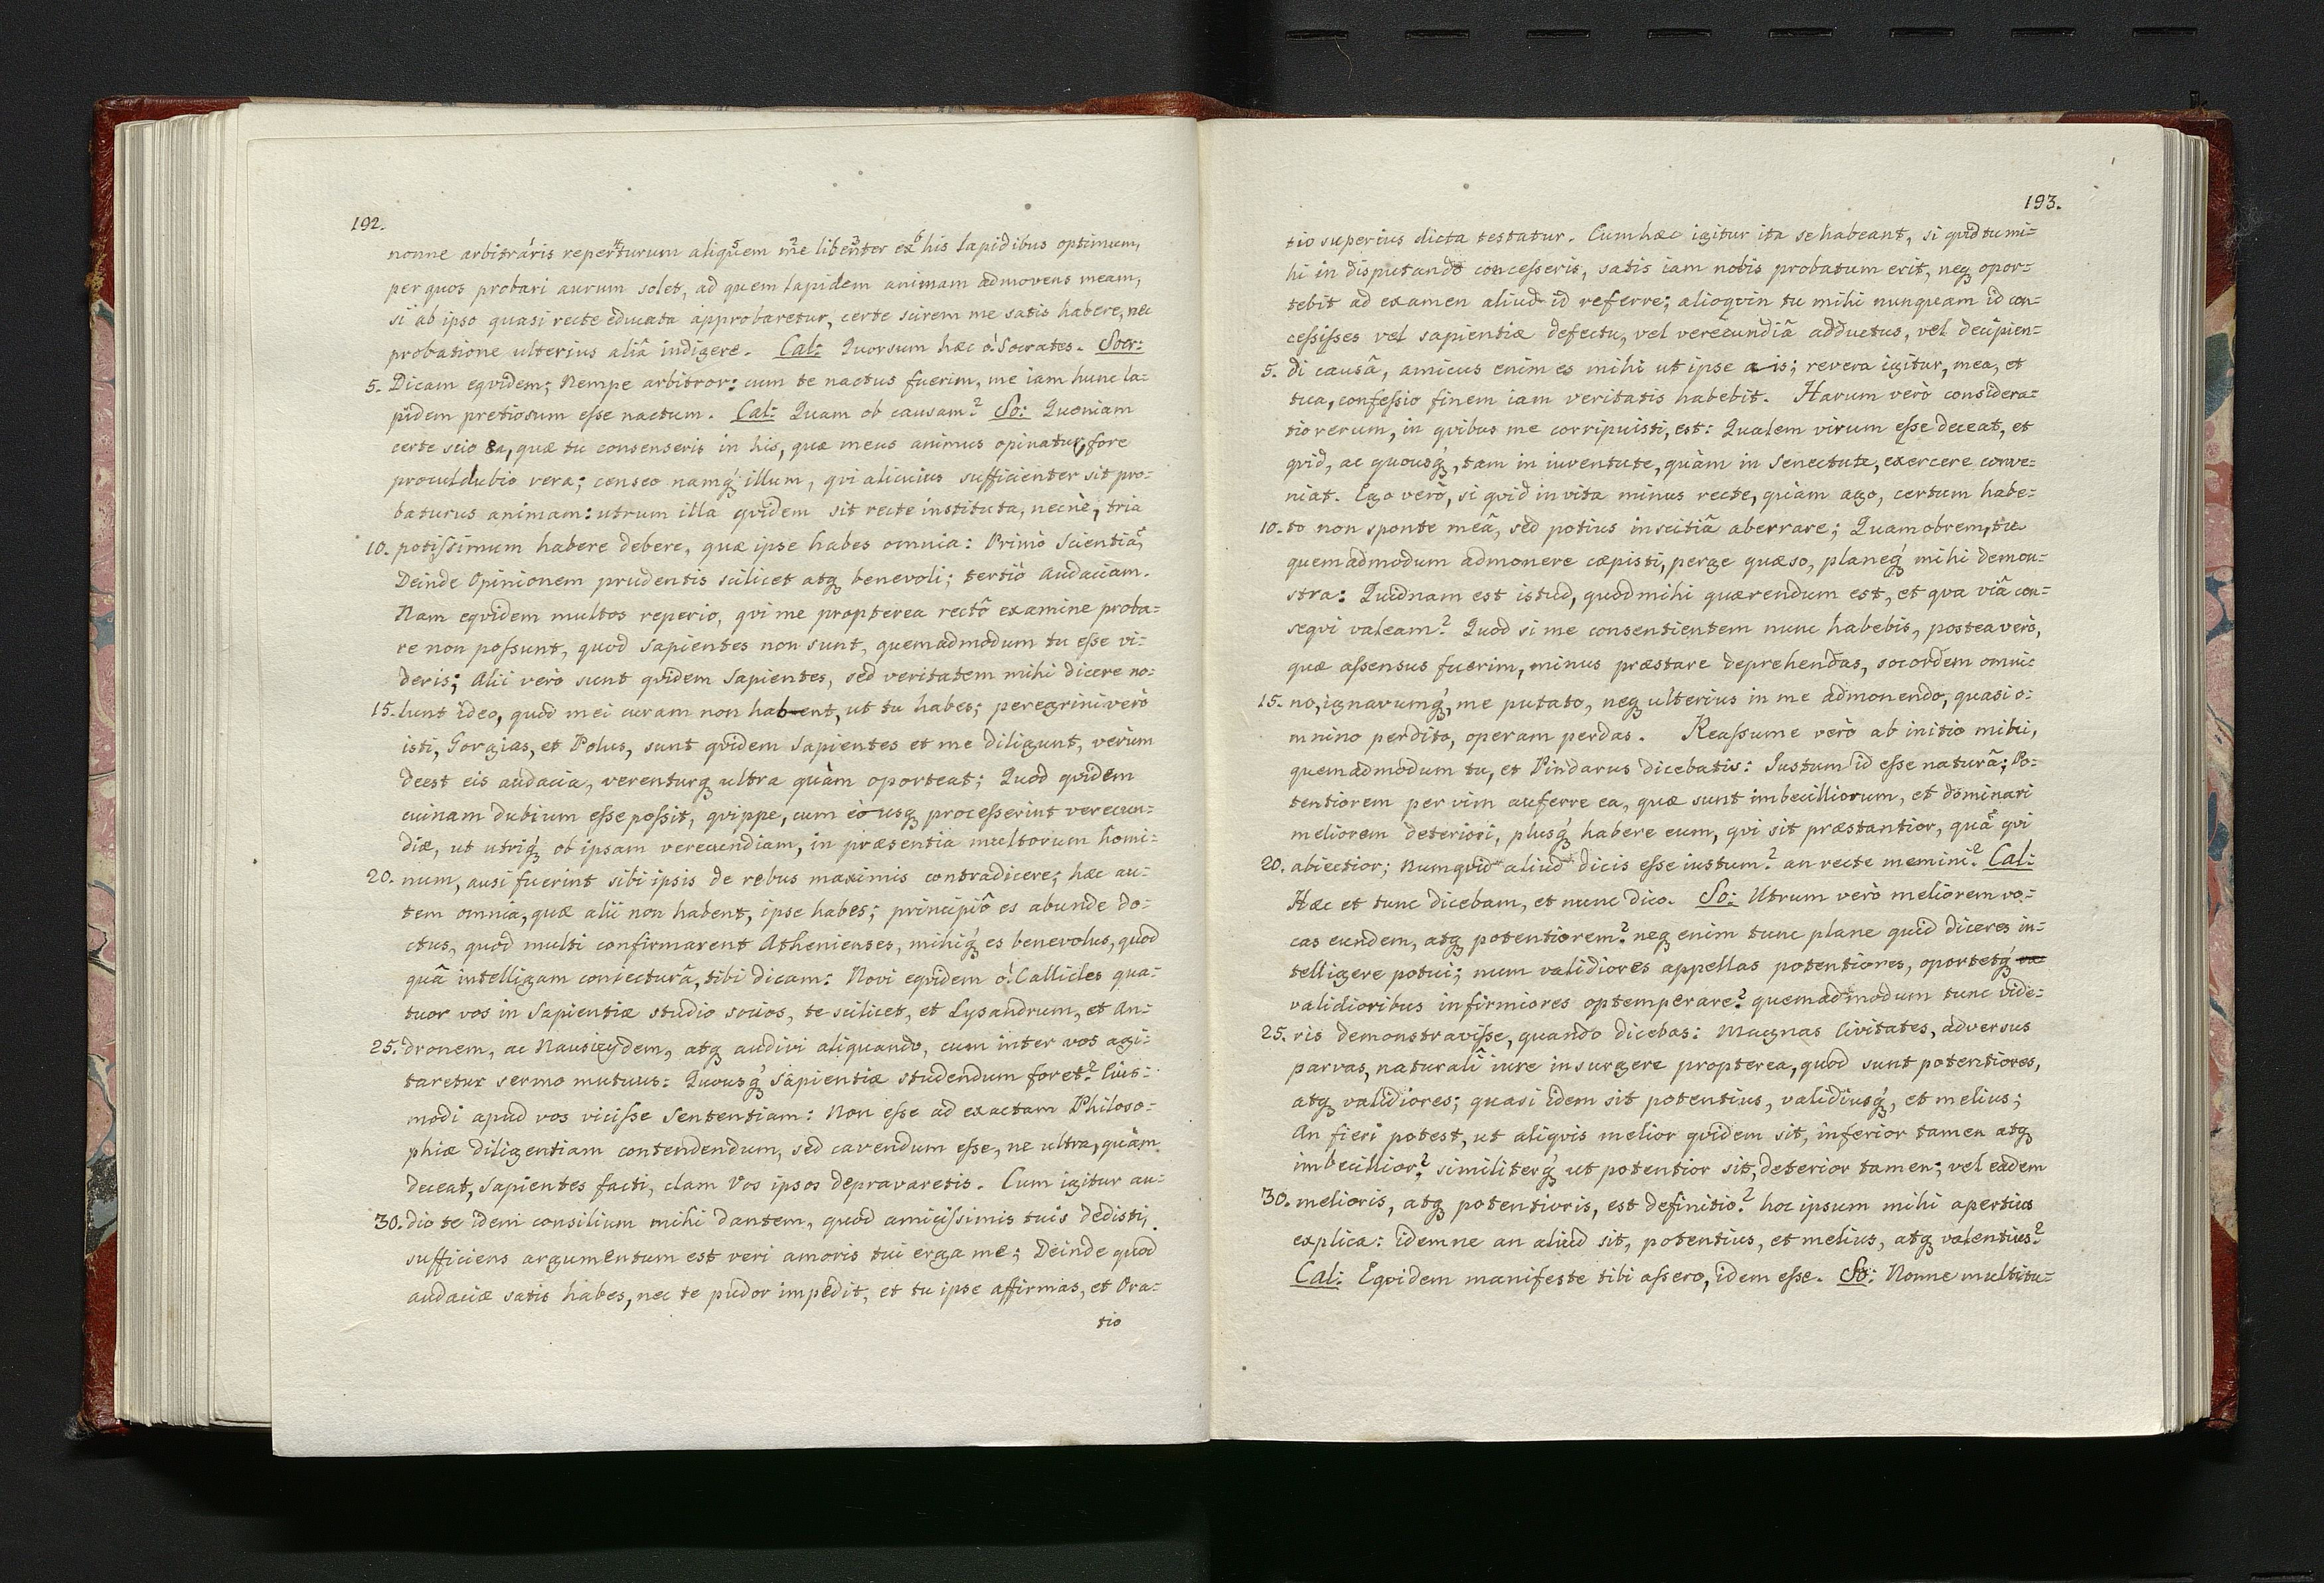 192.
nonne arbitráris reperturum aliquem me libenter ex his lapidibus optimum,
per quos probari aurum solet, ad quem lapidem animam admovens meam,
si ab ipso quasi recte educata approbaretur, certe scirem me satis habere, nec
probatione ulterius aliâ indigere. Cal: Quorsum hæc ò! Socrates. Socr:
5. Dicam eqvidem; Nempe arbitror: cum te nactus fuerim, me iam hunc la-
pidem pretiosum esse nactum. Cal: Quam ob causam? So: Quoniam
certe scio ea, quæ tu consenseris in his, quæ meus animus opinatur, fore
proculdubio vera; censeo namq́ illum, qvi alicuius sufficienter sit pro-
baturus animam: utrum illa qvidem sit recte instituta, necnè, tria
10. potissimum habere debere, quæ ipse habes omnia: Primò Scientiã,
Deinde Opinionem prudentis scilicet atq benevoli; tertiò Audaciam.
Nam eqvidem multos reperio, qvi me propterea rectô examine proba-
re non possunt, quod Sapientes non sunt, quemadmodum tu esse vi-
deris; Alii verò sunt qvidem Sapientes, sed veritatem mihi dicere no-
15. lunt ideo, quod mei curam non habent, ut tu habes; peregrini verò
isti, Gorgias, et Polus, sunt qvidem Sapientes et me diligunt, verùm
deest eis audacia, verenturq ultra quàm oporteat; Quod qvidem
cuinam dubium esse possit, qvippe, cum eò usq processerint verecun-
diæ, ut utriq́ ob ipsam verecundiam, in præsentia multorum homi-
20. num, ausi fuerint sibi ipsis de rebus maximis contradicere; hæc au-
tem omnia, quæ alii non habent, ipse habes; principiô es abunde do-
ctus, quod multi confirmarent Athenienses, mihiq́ es benevolus, quod
quâ intelligam coniecturâ, tibi dicam: Novi eqvidem ò! Callicles qua-
tuor vos in Sapientiæ studio socios, te scilicet, et Lysandrum, et An-
25. dronem, ac Nausicydem, atq audivi aliquando, cum inter vos agi-
taretur sermo mutuus: Quousq́ Sapientiæ studendum foret? Eius-
modi apud vos vicisse Sententiam: Non esse ad exactam Philoso-
phiæ diligentiam contendendum, sed cavendum esse, ne ultra, quàm
deceat, Sapientes facti, clam Vos ipsos depravaretis. Cum igitur au-
30. dio te idem consilium mihi dantem, quod amicissimis tuis dedisti,
sufficiens argumentum est veri amoris tui erga me; Deinde quod
audaciæ satis habes, nec te pudor impedit, et tu ipse affirmas, et Ora-
tio
193.
tio superius dicta testatur. Cum hæc igitur ita se habeant, si qvid tu mi-
hi in disputando concesseris, satis iam nobis probatum erit, neq opor-
tebit ad examen aliud id referre; alioqvin tu mihi nunquam id con-
cessisses vel sapientiæ defectu, vel verecundiâ adductus, vel decipien-
5. di causâ, amicus enim es mihi ut ipse ais; revera igitur, mea, et
tua, confessio finem iam veritatis habebit. Harum verò considera-
tio rerum, in qvibus me corripuisti, est: Qualem virum esse deceat, et
qvid, ac quousq́, tam in iuventute, quàm in Senectute, exercere conve-
niat. Ego verò, si qvid in vita minus recte, quàm ago, certum habe-
10. to non sponte meâ, sed potius inscitiâ aberrare; Quamobrem, tu
quemadmodum admonere cæpisti, perge quæso, planeq́ mihi demon-
stra: Quidnam est istud, quod mihi quærendum est, et qva viâ con-
seqvi valeam? Quod si me consentientem nunc habebis, postea verò,
quæ assensus fuerim, minus præstare deprehendas, socordem omni
15. no, ignavumq́, me putato, neq ulterius in me admonendo, quasi o-
mnino perdito, operam perdas. Reassume verò ab initio mihi,
quemadmodum tu, et Pindarus dicebatis: Justum id esse naturâ; Po-
tentiorem per vim auferre ea, quæ sunt imbecilliorum, et dominari
meliorem deteriori, plusq́ habere eum, qvi sit præstantior, quã qvi
20. abiectior; Numqvid aliud dicis esse iustum? an recte memini? Cal:
Hæc et tunc dicebam, et nunc dico. So: Utrum verò meliorem vo-
cas eundem, atq potentiorem? neq enim tunc plane quid diceres in-
telligere potui; num validiores appellas potentiores, oportetq́ va
validioribus infirmiores optemperare? quemadmodum tunc vide-
25. ris demonstravisse, quando dicebas: Magnas Civitates, adversus
parvas, naturali iure insurgere propterea, quod sunt potentiores,
atq validiores; quasi idem sit potentius, validiusq́, et melius;
An fieri potest, ut aliqvis melior qvidem sit, inferior tamen atq
imbecillior? similiterq́ ut potentior sit, deterior tamen; vel eadem
30. melioris, atq potentioris, est definitio? hoc ipsum mihi apertius
explica: idemne an aliud sit, potentius, et melius, atq valentius?
Cal: Eqvidem manifeste tibi assero, idem esse. So: Nonne multitu-